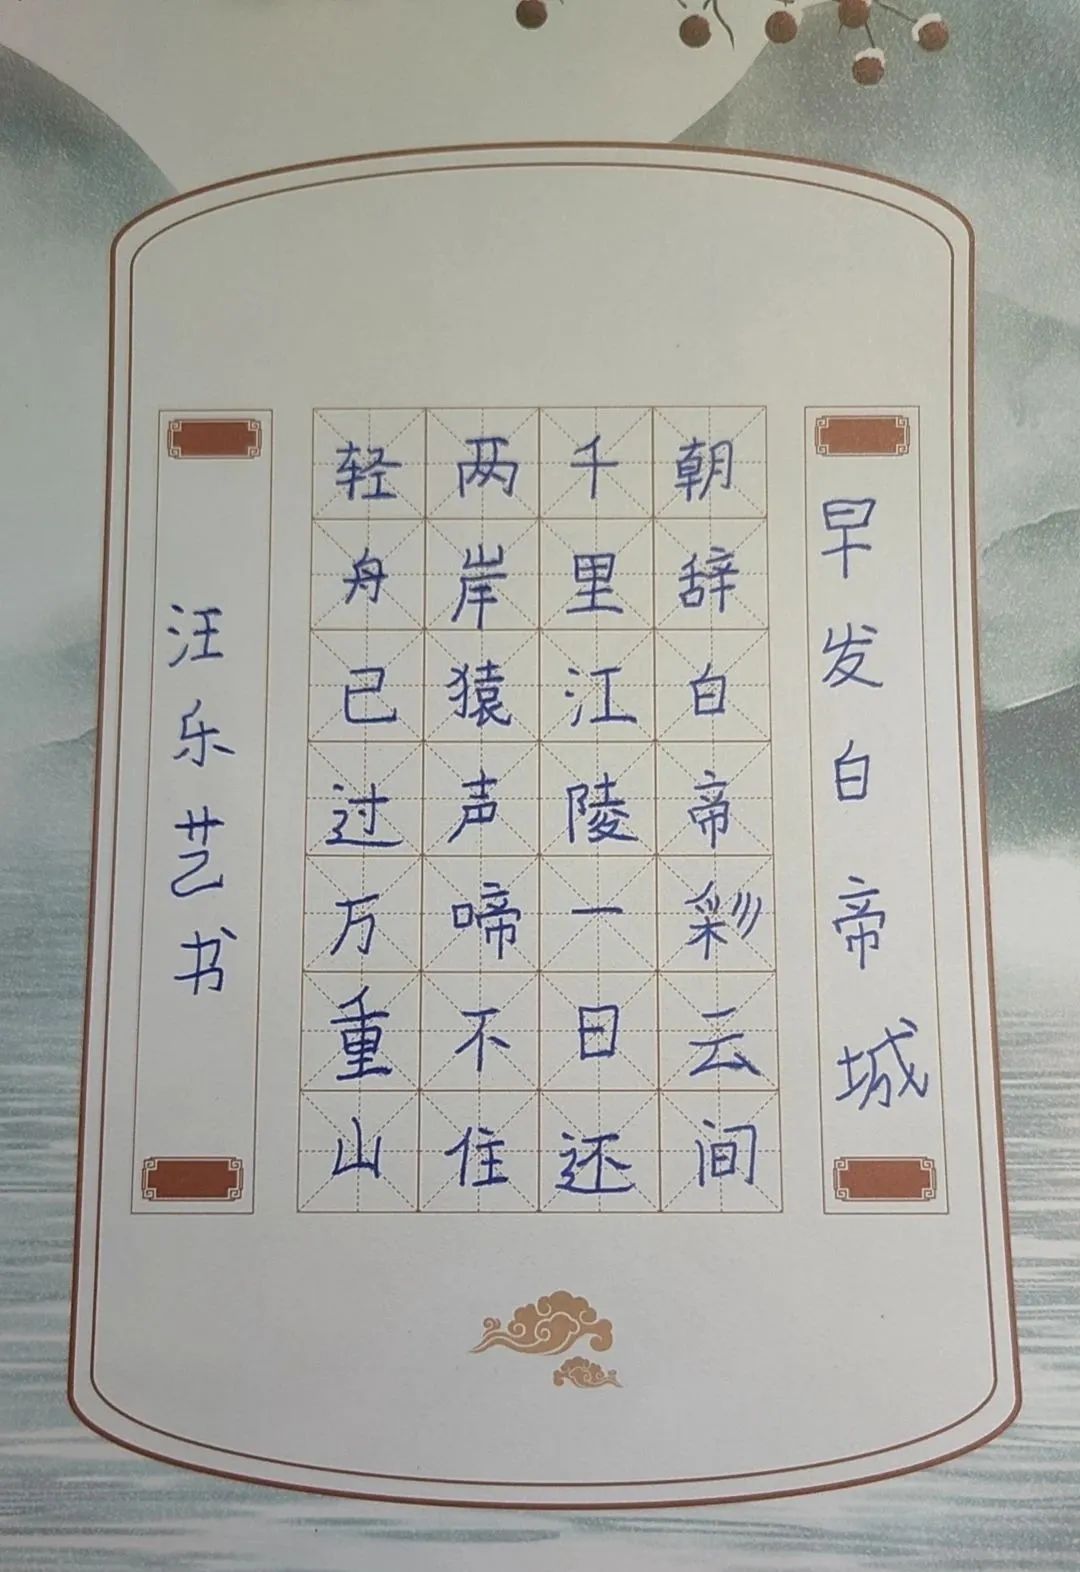 早发白帝城
朝辞白帝彩云间
千里江陵一日还
两岸猿声啼不住
轻舟已过万重山
汪乐艺书